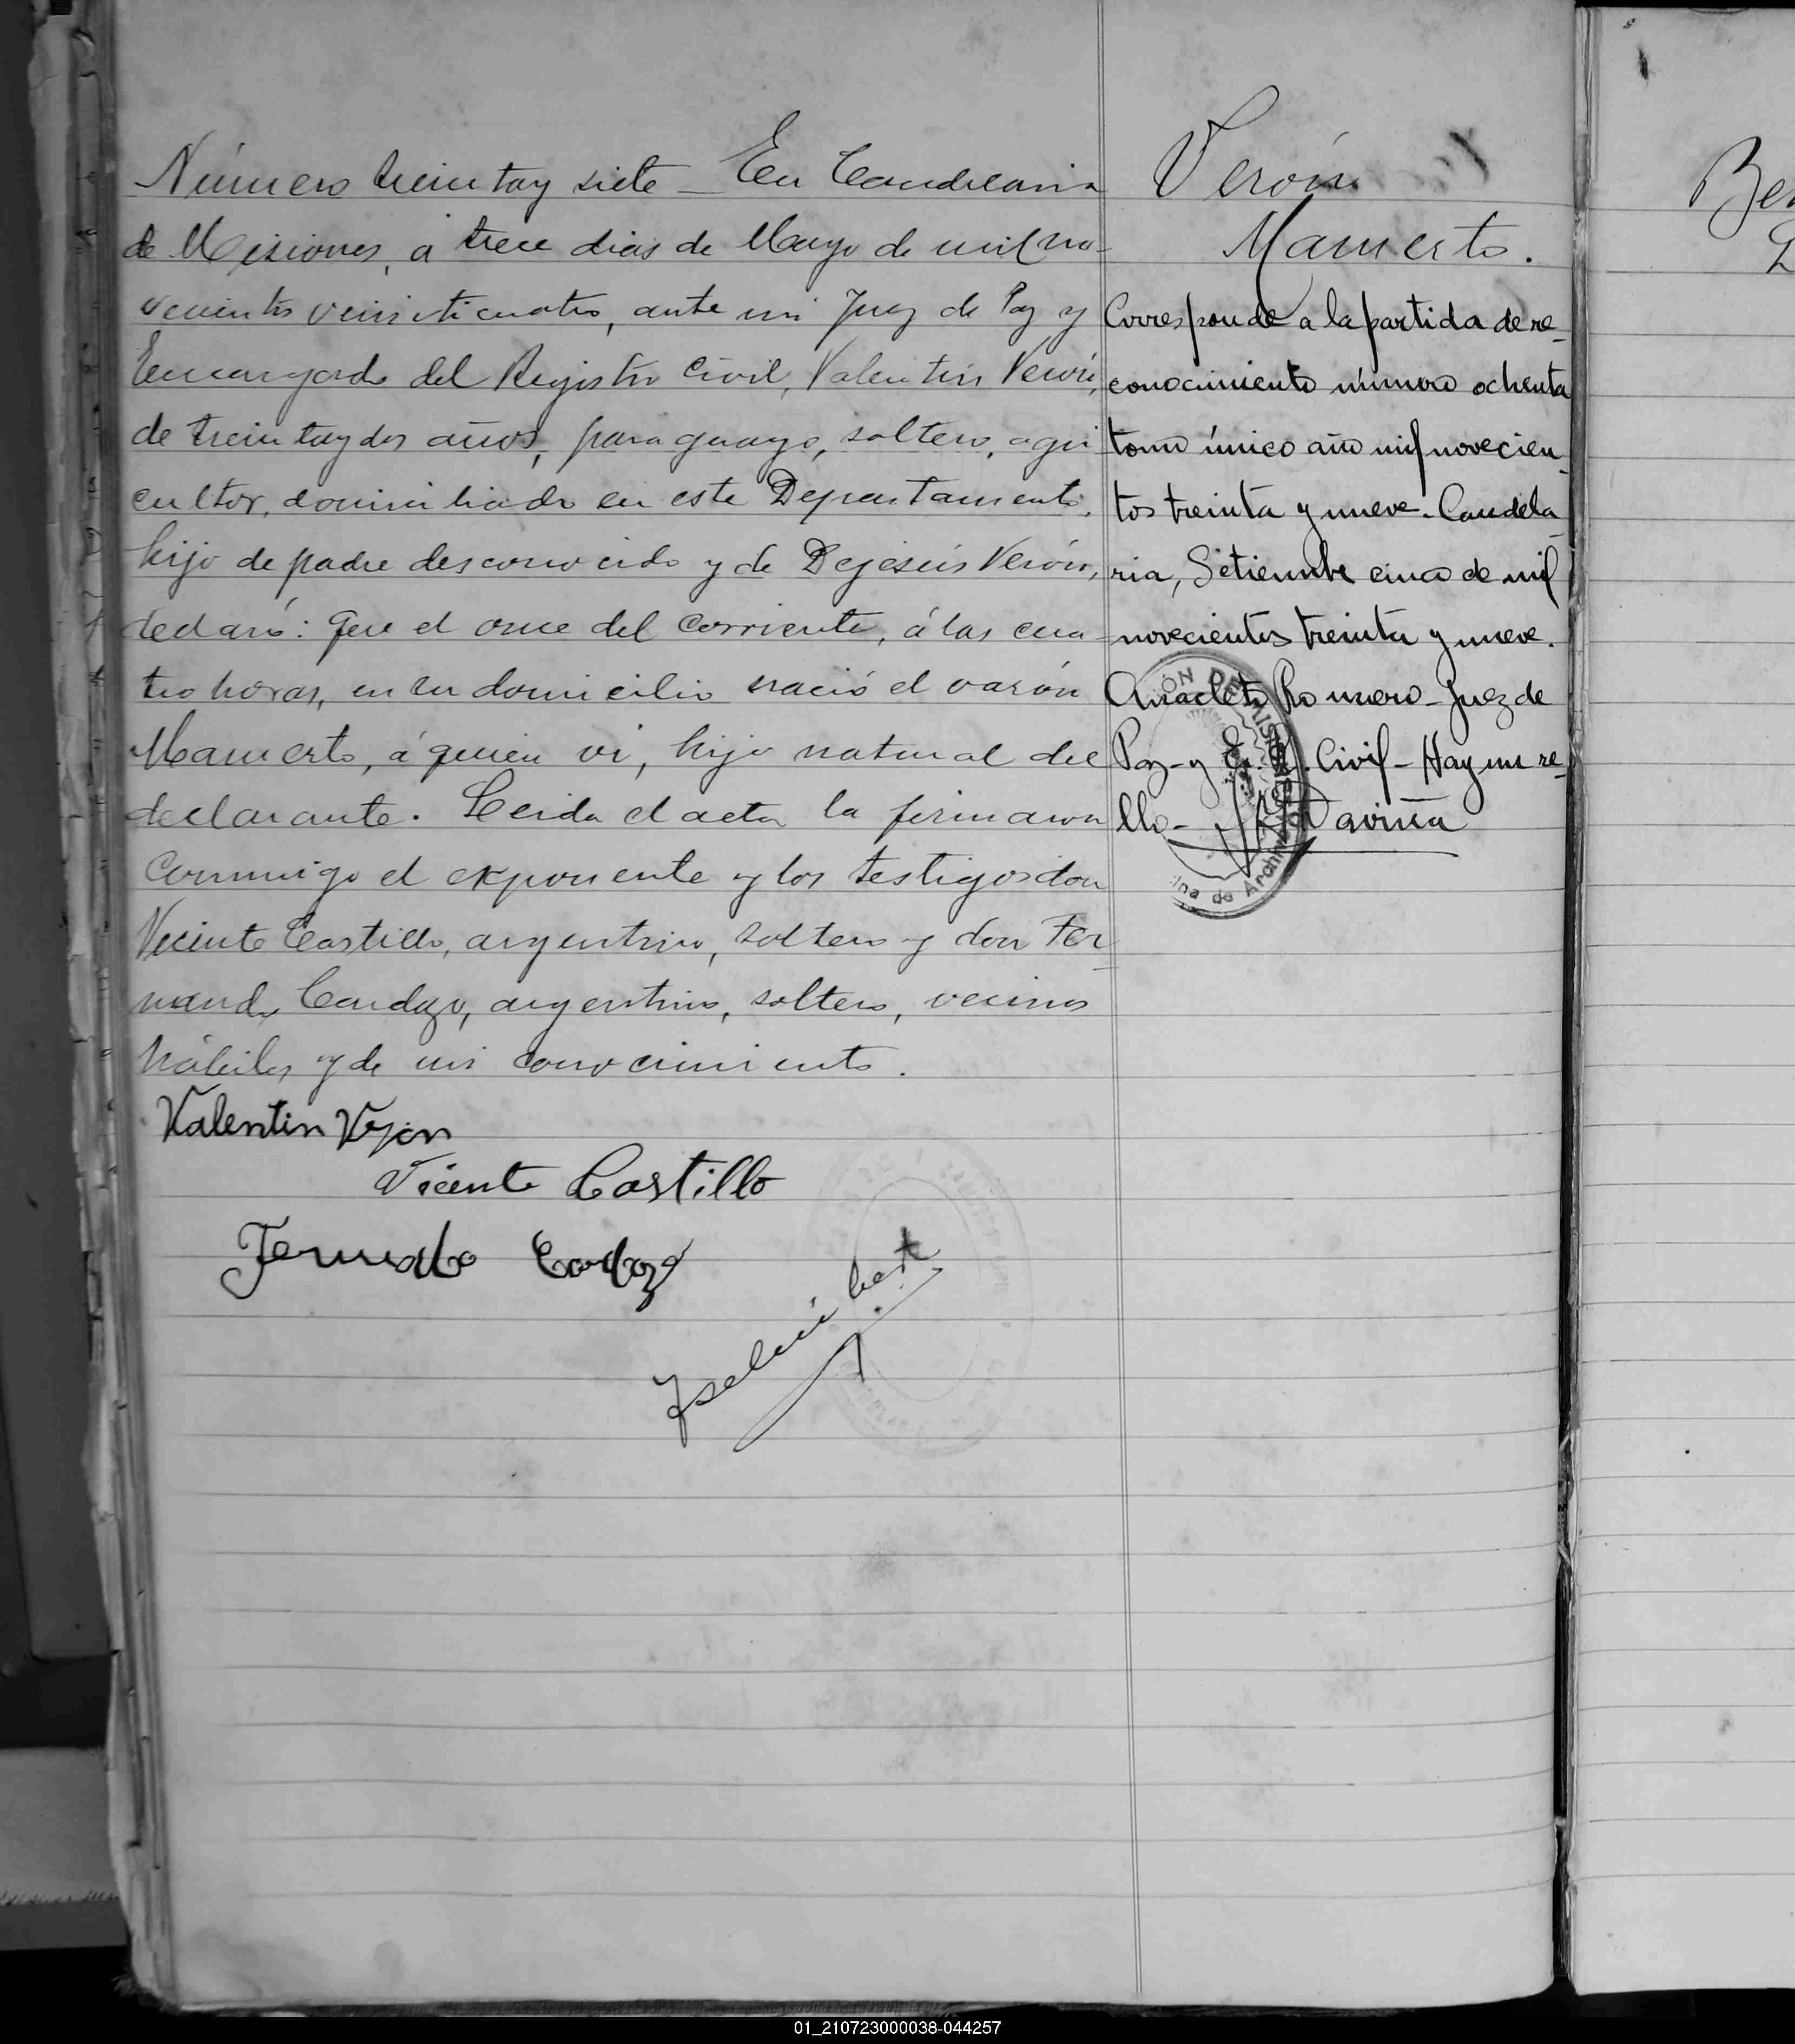 Número treinta y siete — En Candelaria
de Misiones, á trece dias de Mayo de mil no-
vecientos veinticuatro, ante mi Juez de Paz y
Encargado del Registro Civil, Valentin Verón,
de treinta y dos años, paraguayo, soltero, agri
cultor, domiciliado en este Departamento,
hijo de padre desconocido y de Dejesús Verón,
declaró: Que el once del corriente, á las cua-
tro horas, en su domicilio nació el varón
Mamerto, á quien vi, hijo natural del
declarante. Leida el acta la firmaron
conmigo el exponente y los testigos don
Vicente Castillo, argentino, soltero y don Fer
nando Cardozo, argentino, soltero, vecinos
hábiles y de mi conocimiento.
Valentin Veron
Vicente Castillo
Fernando Cardozo
Verón
Mamerto.
Corresponde a la partida de re-
conocimiento número ochenta
tomo único año mil novecien-
tos treinta y nueve. Candela-
ria, Setiembre cinco de mil
novecientos treinta y nueve.
Anacleto Romero - Juez de
Paz - y E. R. Civil - Hay un se-
llo -
Ber
01_210723000038-044257